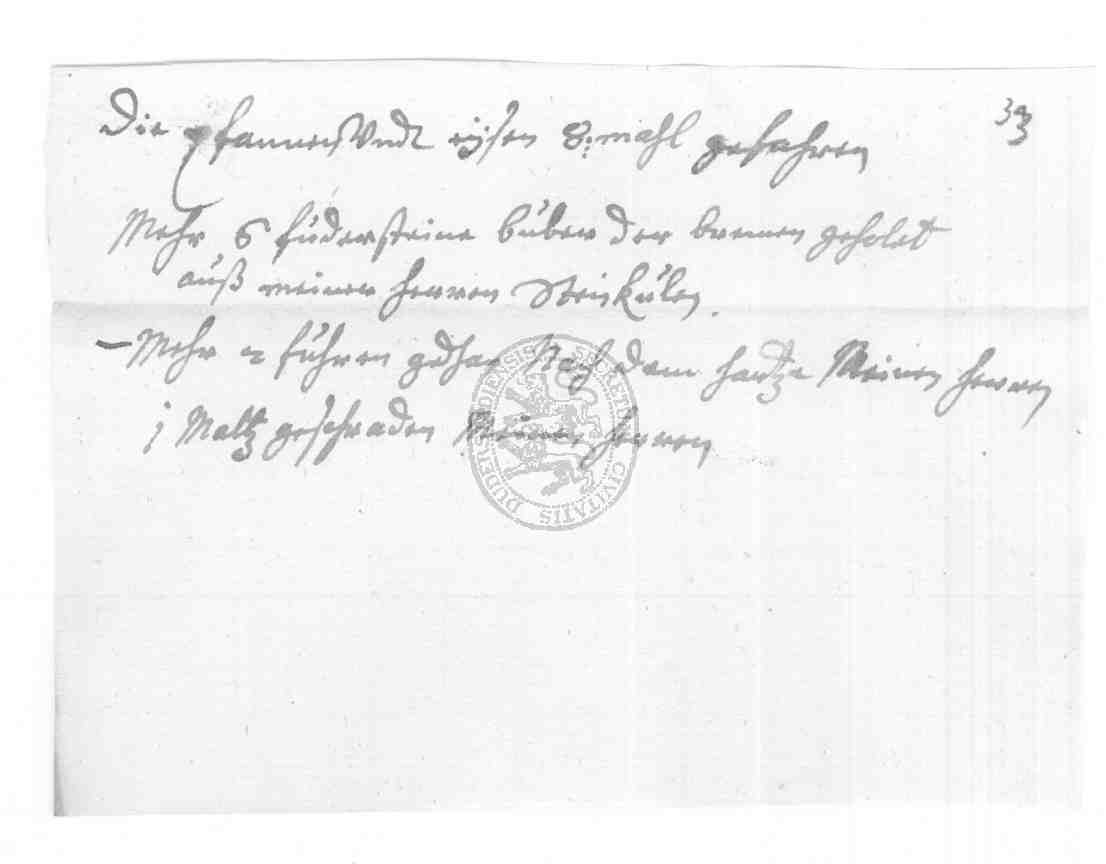 Die pfannen Vndt eysen 8: mahl gefahren
33
Mehr 6 fuder steine büber der bremen geholet
auß meiner herren Steinkulen.
– Mehr 2 führen gethan Nach dem hartze Meinen herren
j Maltz geschraden Meinen herren
SECRETUM CIVITATIS DUDERSTADIENSIS